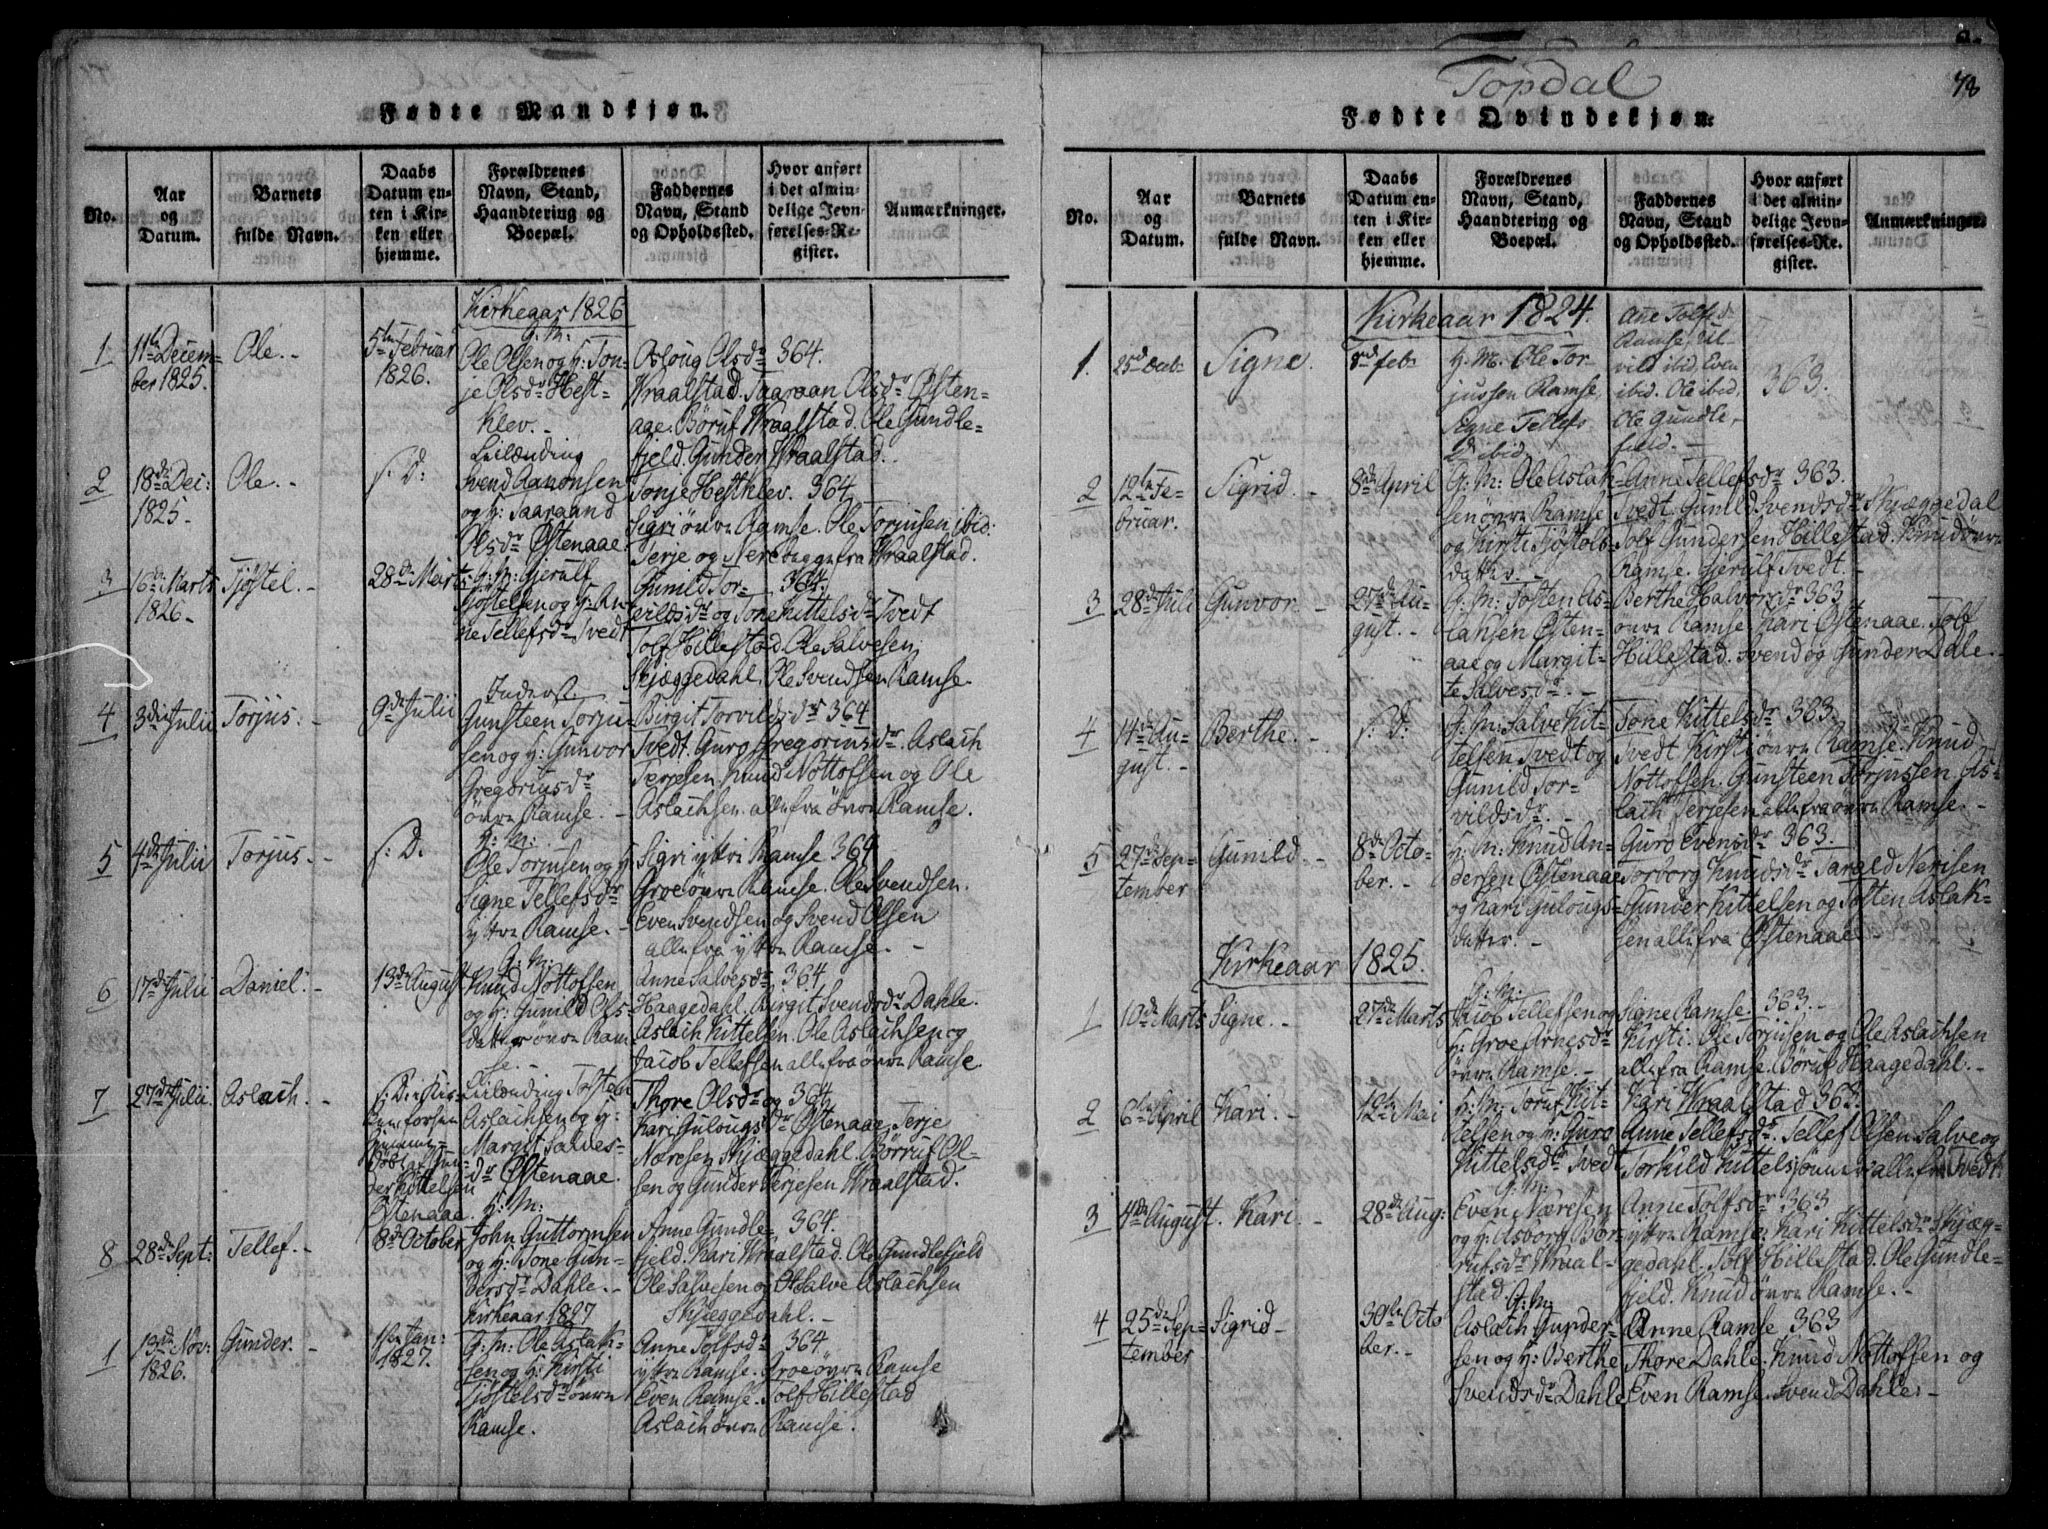 Fødte Mandkjøn.
No.
Aar
og
Datum.
Barnets
fulde Navn.
Daabs
Datum en-
ten i Kir-
ken eller
hjemme.
Forældrenes
Navn, Stand,
Haandtering og
Boepæl.
Faddernes
Navn, Stand
og Opholdssted.
Hvor anført
i det almin-
delige Jevn-
førelses-Re-
gister.
Anmærkninger.
Kirkeaar 1826
1
11te Decem-
ber 1825.
Ole.
5te Februar
1826.
G: M:
Ole Olsen og H: Ton-
je Olsdr Hest-
klev.
Asloug Olsdr 364.
Wraalstad. Taaraan Olsdr Østen-
aae. Børuf Wraalstad. Ole Gundle-
fjeld. Gunder Wraalstad.
2
18de Dec:
1825.
Ole.
s. D:
Leilænding
Svend Aanonsen
og H: Taaraand
Olsdr Østenaae.
Tonje Hestklev. 364
Sigri øvre Ramse. Ole Torjusen ibid:
Terje og Nere begge fra Wraalstad.
3
16de Marts
1826.
Tjøstel.
28de Marts
G: M: Gjerulf
Tjøstelsen og H: An-
ne Tellefsdr Tvedt
Gunild Tor- 364.
vildsdr og Tone Kittelsdr Tvedt
Tolf Hillestad. Ole Salvesen
Skjæggedahl. Ole Svendsen Ramse.
4
3die Julii
Torjus.
9de Julii
Inderst
Gunsteen Torju-
sen og H: Gunvor
Gregoriusdr
øvre Ramse.
Birgit Torvildsdr 364
Tvedt. Guro Gregoriusdr. Aslach
Terjesen Knud Nottofsen og Ole
Aslachsen alle fra øvre Ramse.
5
4de Julii
Torjus.
s. D.
G: M:
Ole Torjusen og H:
Signe Tellefsdr
yttre Ramse.
Sigri yttre Ramse 364
Groe øvre Ramse. Ole Svendsen.
Even Svendsen og Svend Olsen
alle fra yttre Ramse.
6
17de Julii
Daniel.
13de August
G: M:
Knud Nottofsen
og H: Gunild Ols-
datter øvre Ram-
se.
Anne Salvesdr 364
Haagedahl. Birgit Svendsdr Dahle.
Aslach Kittelsen. Ole Aslachsen og
Jacob Tellefsen alle fra øvre Ramse.
7
27de Julii.
Aslach.
Østenaae.
Leilænding Tosten
Aslachsen og H:
Margit Salves-
dr Østenaae.
Thore Olsdr og 364
Kari Gulougsdr Østenaae. Terje
Næresen Skjæggedahl. Børruf Ol-
sen og Gunder Terjesen Wraalstad.
8
28de Sept:
Tellef.
8de October
G: M:
John Guttormsen
og H: Tone Gun-
dersdr Dahle.
Anne Gundle- 364.
fjeld. Kari Wraalstad. Ole Gundlefjeld
Ole Salvesen og Salve Aslachsen
Skjæggedahl.
Kirkeaar 1827
1
13de Nov:
1826.
Gunder.
1ste Jan:
1827.
G: M: Ole Aslak-
sen og H: Kirsti
Tjøstelsdr øvre
Ramse.
Anne Tolfsdr 364
yttre Ramse. Groe øvre Ramse
Even Ramse. Tolf Hillestad
Aslach øvre Ramse.
Topdal
78
Fødte Qvindekjøn.
No.
Aar
og
Datum.
Barnets
fulde Navn.
Daabs
Datum en-
ten i Kir-
ken eller
hjemme.
Forældrenes
Navn, Stand,
Haandtering og
Boepæl.
Faddernes
Navn, Stand
og Opholdssted.
Hvor anført
i det almin-
delige Jevn-
førelses-Re-
gister.
Anmærkninger.
Kirkeaar 1824.
1.
Signe.
G: M. Ole Tor-
jusson Ramse,
Signe Tellefs
D ibid.
Ane Tolfsd.
ibid. Ole ibid,
Ole Gundle-
field.
363.
2
12te Fe-
bruar.
Sigrid.
8de April
G: M: Ole Aslak-
sen øvre Ramse
og Kirsti Tjøstols-
datter.
Anne Tellefsdr 363.
Tvedt. Gunild Svendsdr Skjæggedal
Tolf Gundersen Hillestad. Knud øvre
Ramse. Gjerulf Tvedt.
3
28de Juli
Gunvor
27de Au-
gust.
G: M: Tosten As-
laksen Østen-
aae og Margit-
te Salvesdr.
Berthe Halvorsdr 363
øvre Ramse. Kari Østenaae. Tolf
Hillestad. Svend og Gunder Dahle.
4
14de Au-
gust.
Berthe.
s. D:
G: M: Salve Kit-
telsen Tvedt og
Gunild Tor-
vildsdr.
Tone Kittelsdr 363.
Tvedt Kirsti øvre Ramse. Knud
Nottofsen. Gunsteen Torjussen As-
lach Terjesen alle fra øvre Ramse.
5
27de Sep-
tember
Gunild.
8de Octo-
ber.
G: M: Knud An-
dersen Østenaae
og Kari Gulougs-
datter.
Guro Evensdr 363.
Torborg Knudsdr Tarald Nerisen
Gunder Kittelsen og Tosten Aslak-
sen alle fra Østenaae
Kirkeaar 1825.
1
10de Marts
Signe.
27de Marts
G: M:
Jacob Tellefsen og
H: Groe Arnesdr
øvre Ramse.
Signe Ramse. 363.
Kirsti. Ole Torjusen og Ole Aslachsen
alle fra Ramse. Børuf Haagedahl.
2
6te April
Kari.
12te Mai
G: M. Toruf Kit-
telsen og H: Guro
Kittelsdr Tvedt
Kari Wraalstad 363.
Anne Tellefsdr. Tellef Olsen Salve og
Torkild Kittelsønner alle fra Tvedt.
3
4de August.
Kari.
28de Aug:
G: M:
Even Næresen
og H: Asborg Bør-
rufsdr Wraal-
stad.
Anne Tolfsdr 363
yttre Ramse. Kari Kittelsdr Skjæg-
gedahl. Tolf Hillestad. Ole Gundle-
fjeld. Knud øvre Ramse.
4
25de Sep-
tember
Sigrid
30te Octo
ber.
G: M:
Aslach Gunder-
sen og H: Berthe
Svendsdr Dahle
Anne Ramse 363
Thore Dahle. Knud Nottoffen og
Even Ramse. Svend Dahle.